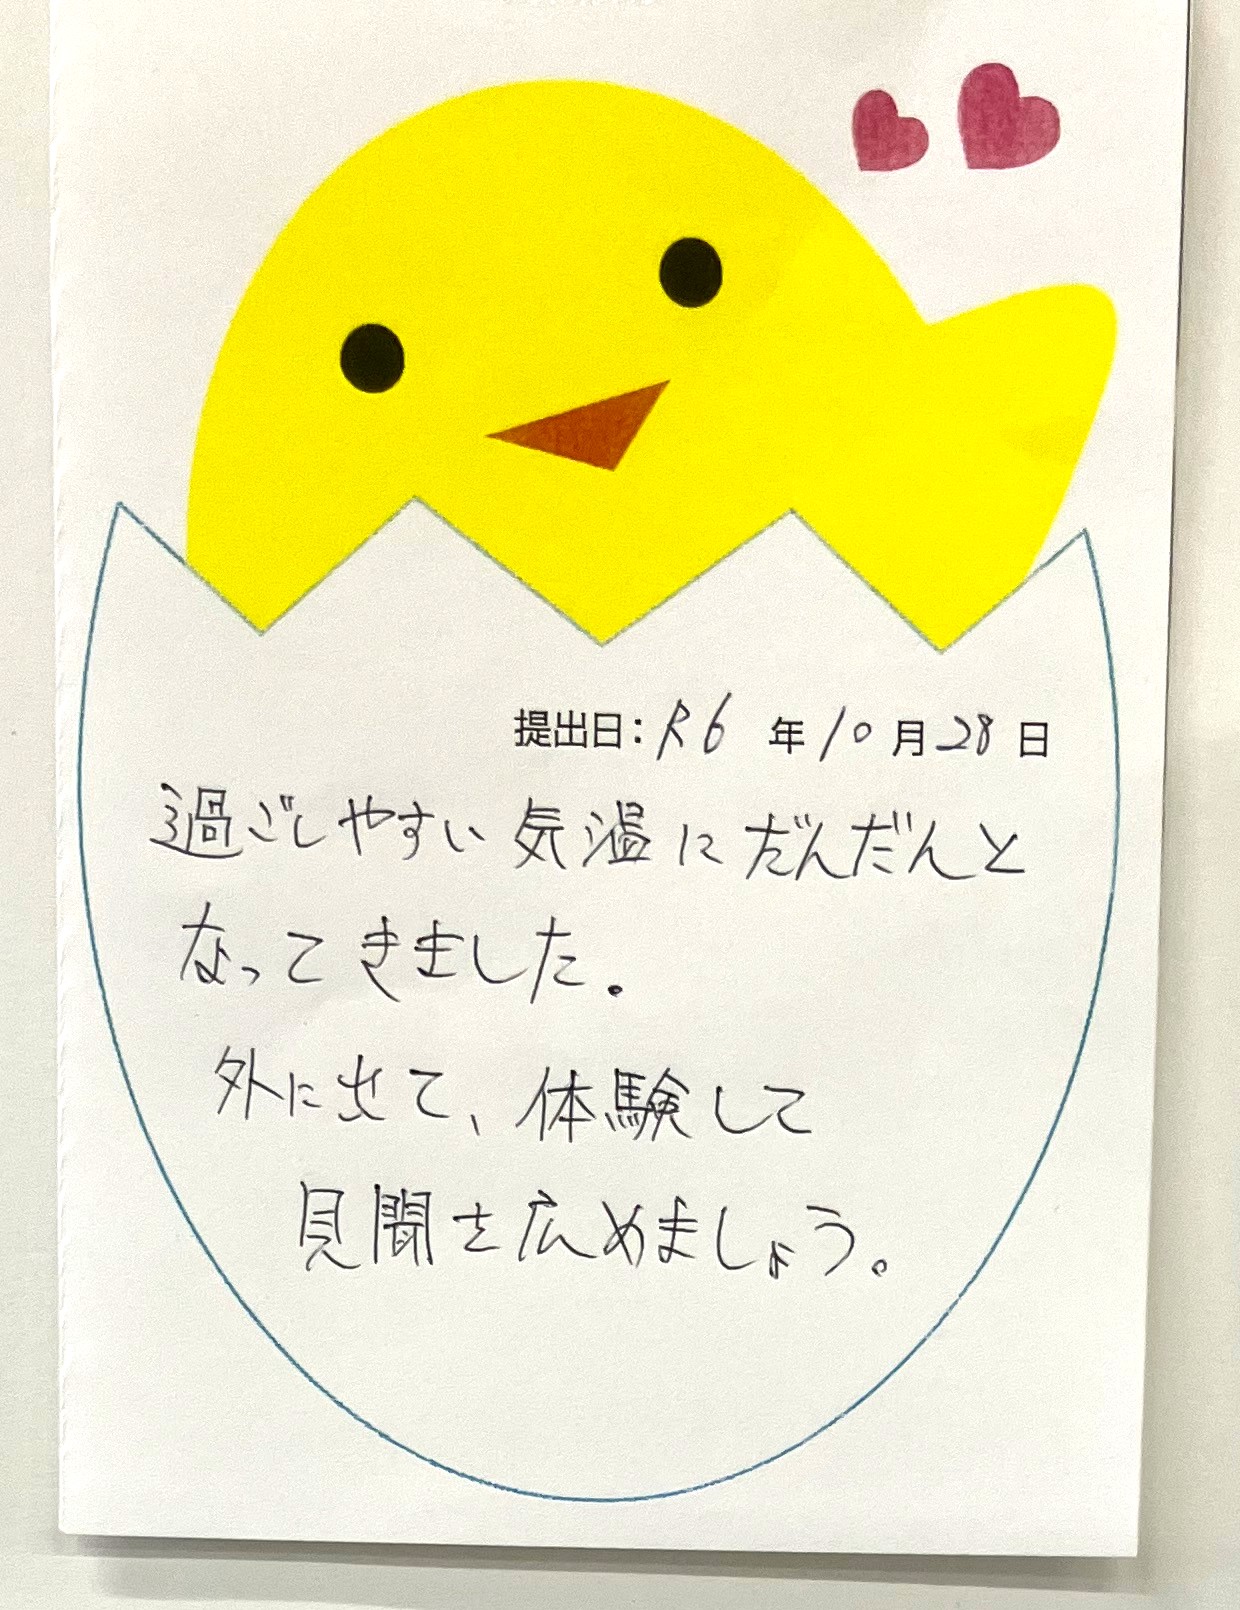 提出日：R6 年 10 月 28 日
過ごしやすい気温にだんだんと
なってきました。
外に出て、体験して
見聞を広めましょう。